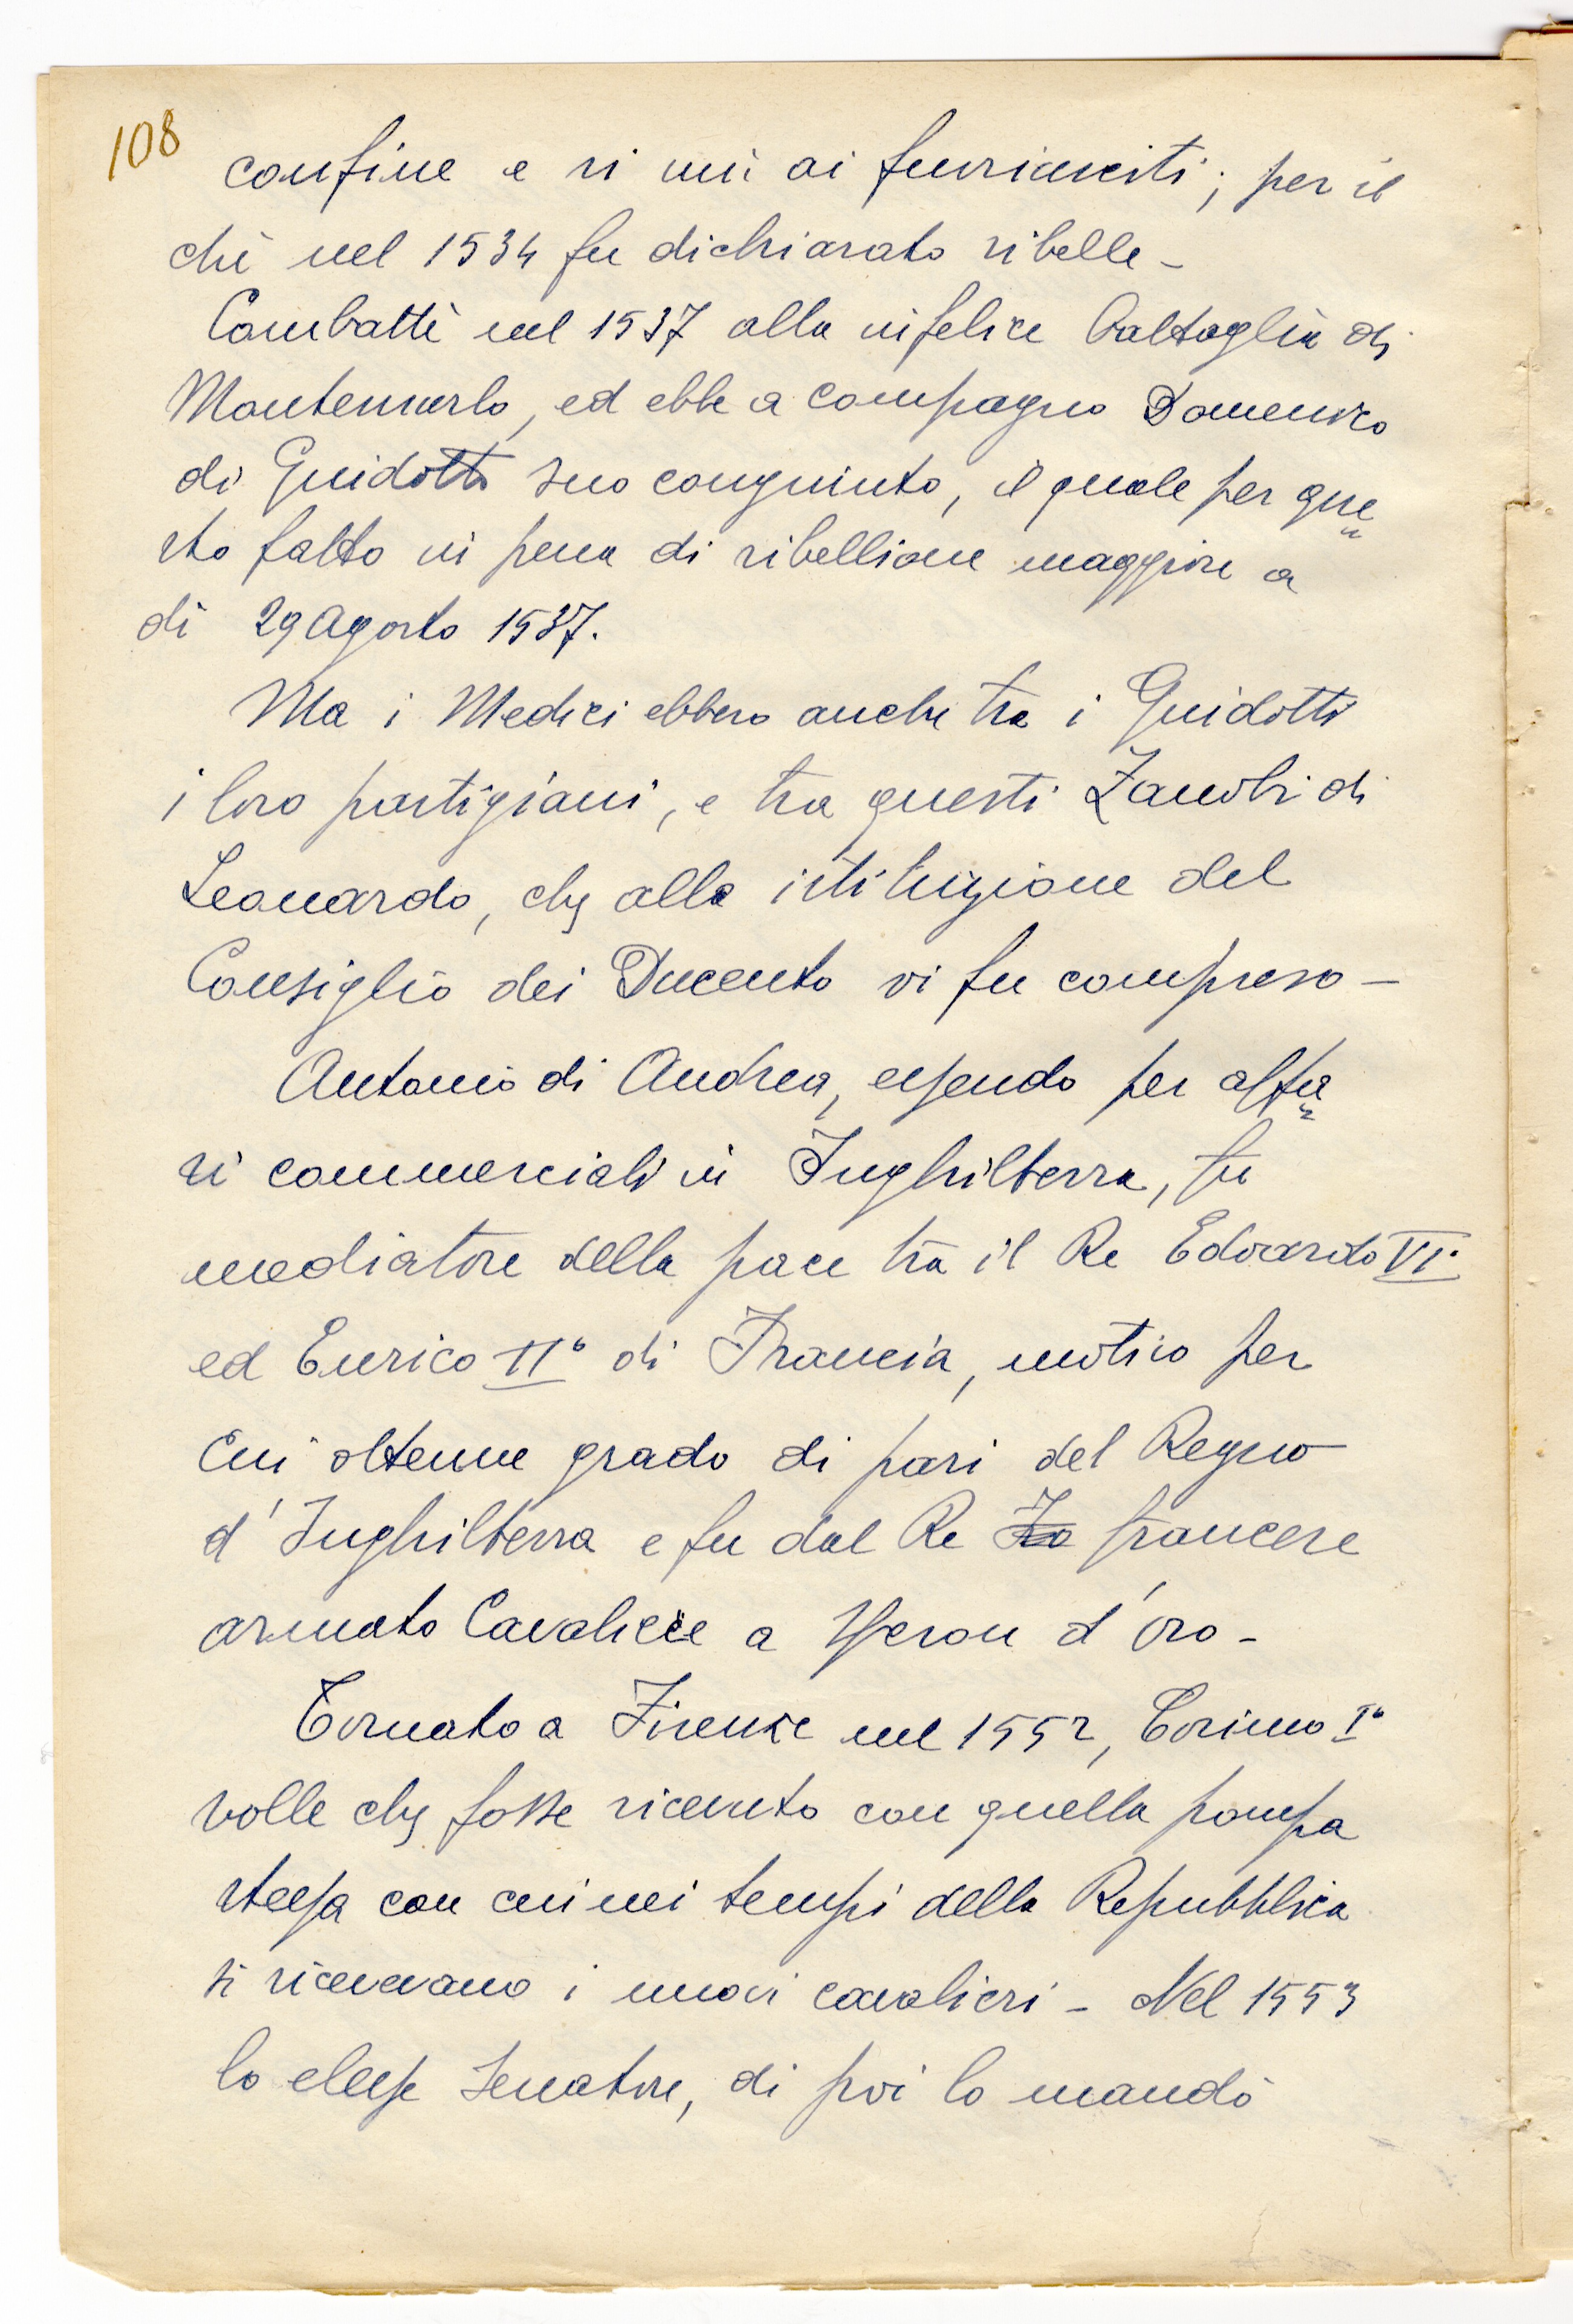 108
confine e si unì ai fuoriusciti; per il
chè nel 1534 fu dichiarato ribelle -
Combattè nel 1537 alla infelice battaglia di
Montemurlo, ed ebbe a compagno Domenico
di Guidotto suo congiunto, il quale per que
sto fatto in pena di ribellione maggiore a
dì 29 Agosto 1537.
Ma i Medici ebbero anche tra i Guidotti
i loro partigiani, e tra questi Zanobi di
Leonardo, che alla istituzione del
Consiglio dei Ducento vi fu compreso -
Antonio di Andrea, essendo per affa
ri commerciali in Inghilterra, fu
mediatore della pace tra il Re Edoardo VI°
ed Enrico II° di Francia, motivo per
cui ottenne grado di pari del Regno
d'Inghilterra e fu dal Re Fra francese
armato Cavaliere a Speron d'oro -
Tornato a Firenze nel 1552, Cosimo I°
volle che fosse ricevuto con quella pompa
stessa con cui nei tempi della Repubblica
si ricevevano i nuovi cavalieri - Nel 1553
lo elesse Senatore, di poi lo mandò